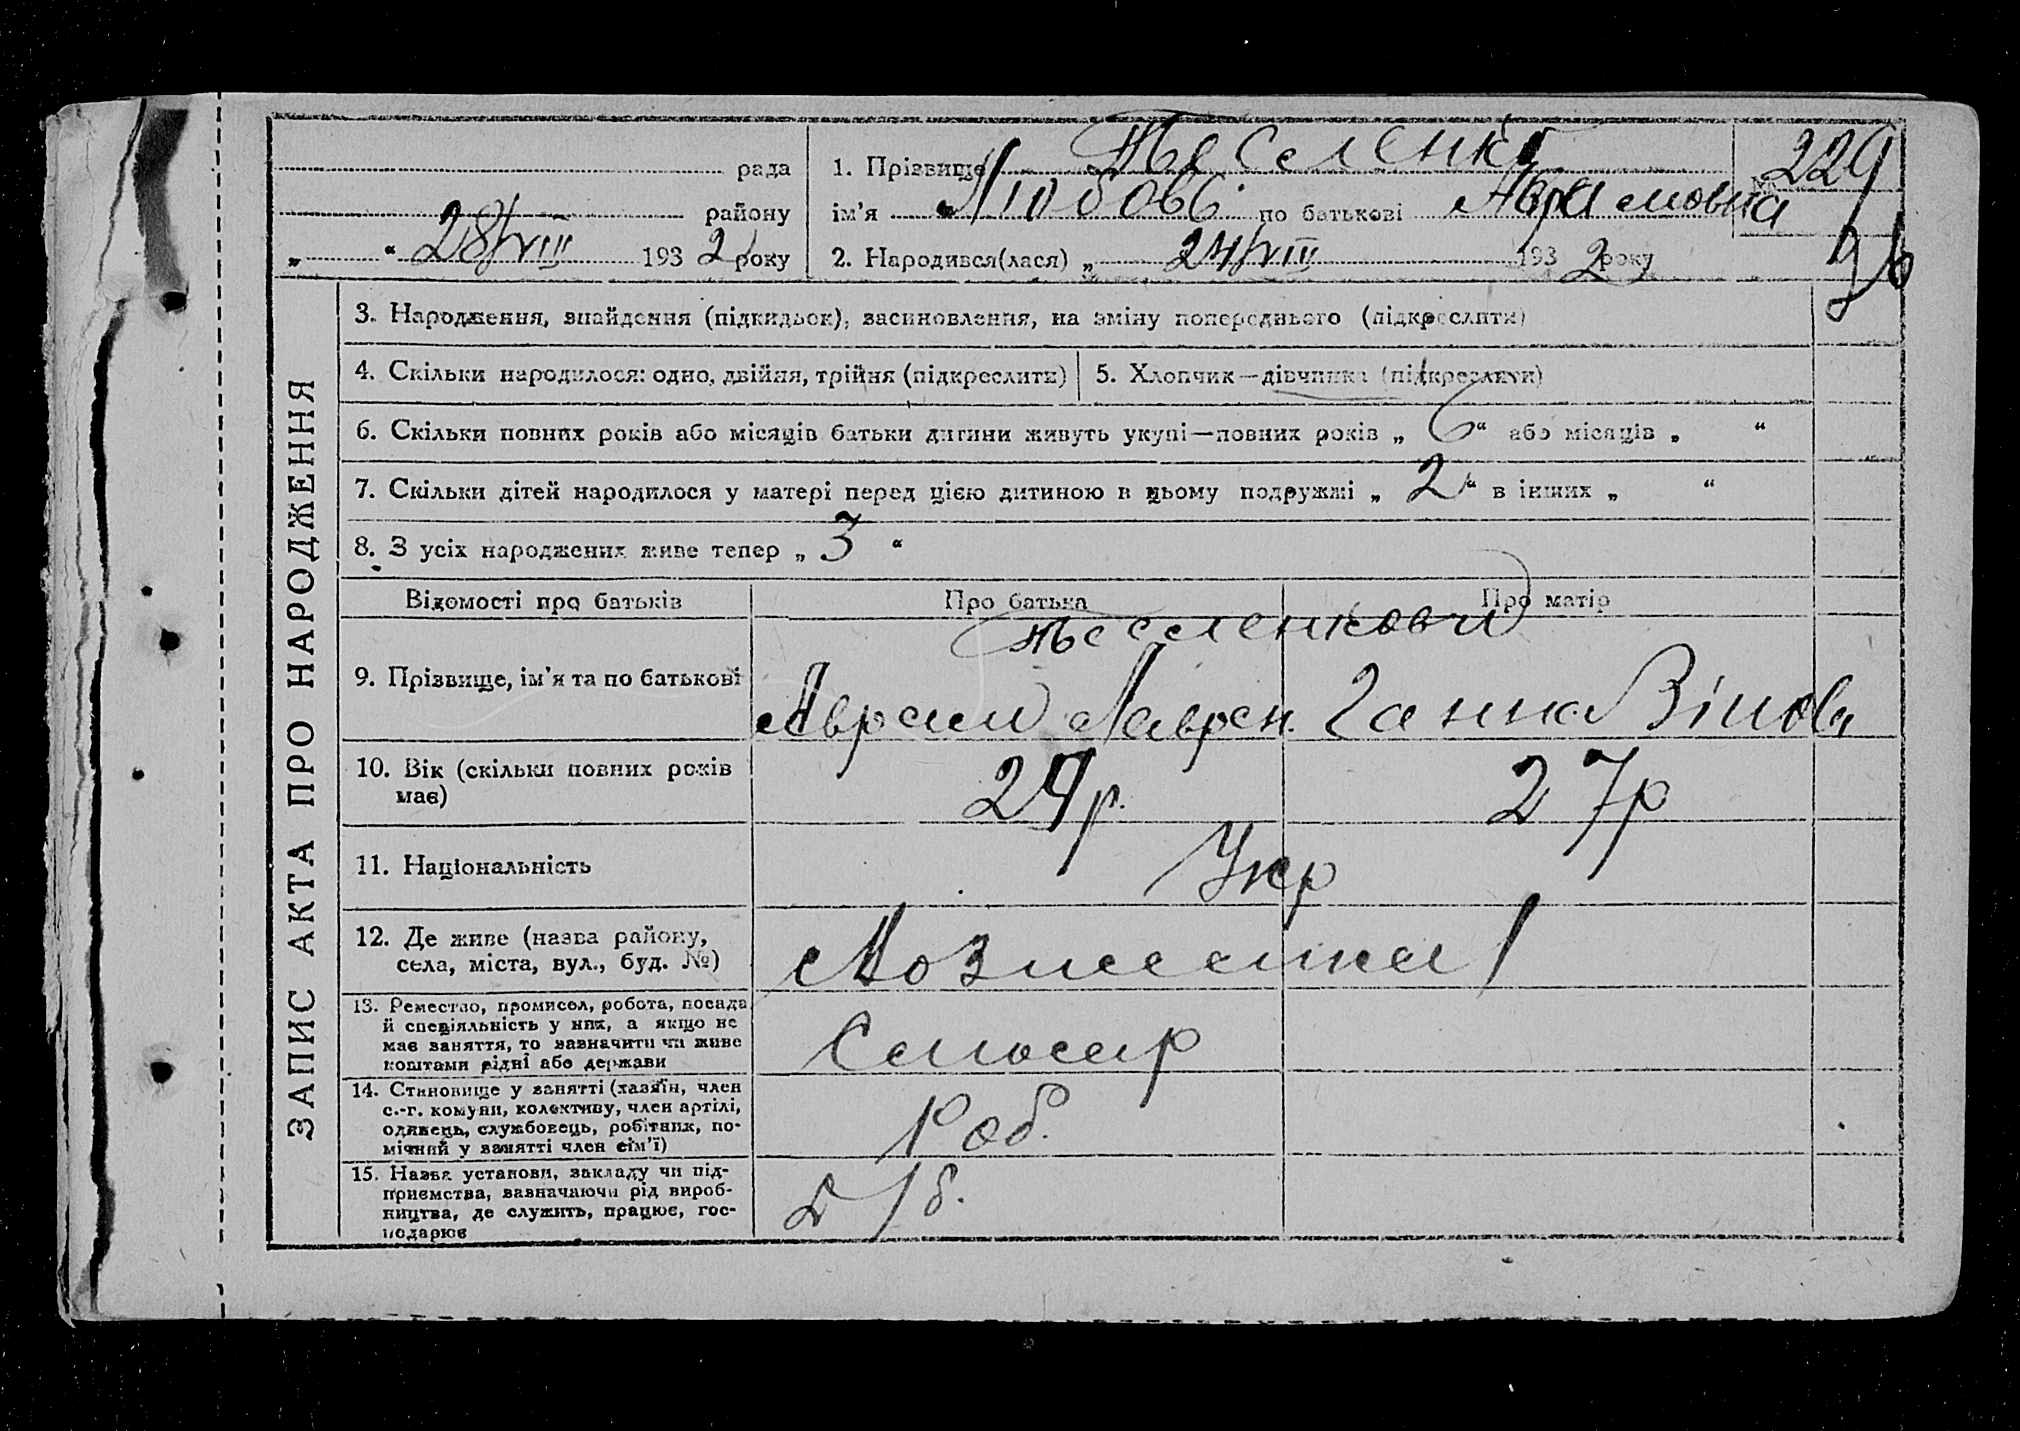 229
рада
1. Прізвище
району
ім'я Любовь по батькові Аврамовна
„ “ 28/VIII 1932 року
2. Народився(лася) „ 24/VIII 1932 року
3. Народження, знайдення (підкидьок), засиновлення, на зміну попереднього (підкреслити)
4. Скільки народилося: одно, двійня, трійня (підкреслити)
5. Хлопчик—дівчинка (підкреслити)
6. Скільки повних років або місяців батьки дитини живуть укупі—повних років „ 6 “ або місяців „ “
7. Скільки дітей народилося у матері перед цією дитиною в цьому подружжі „ 2 “ в інших „ “
8. З усіх народжених живе тепер „ 3 “
ЗАПИС АКТА ПРО НАРОДЖЕННЯ
Відомості про батьків
Про батька
Про матір
9. Прізвище, ім'я та по батькові
Аврам Лаврен. Ганна
10. Вік (скільки повних років
має)
29р. 27р
11. Національність
Укр
12. Де живе (назва району,
села, міста, вул., буд. №)
13. Ремество, промисел, робота, посада
й спеціяльність у них, а якщо не
має заняття, то зазначити чи живе
коштами рідні або держави
Слюсар
14. Становище у занятті (хазяїн, член
с.-г. комуни, колективу, член артілі,
одинець, службовець, робітник, по-
мічний у занятті член сім'ї)
Роб.
15. Назва установи, закладу чи під-
приємства, зазначаючи рід вироб-
ництва, де служить, працює, гос-
подарює